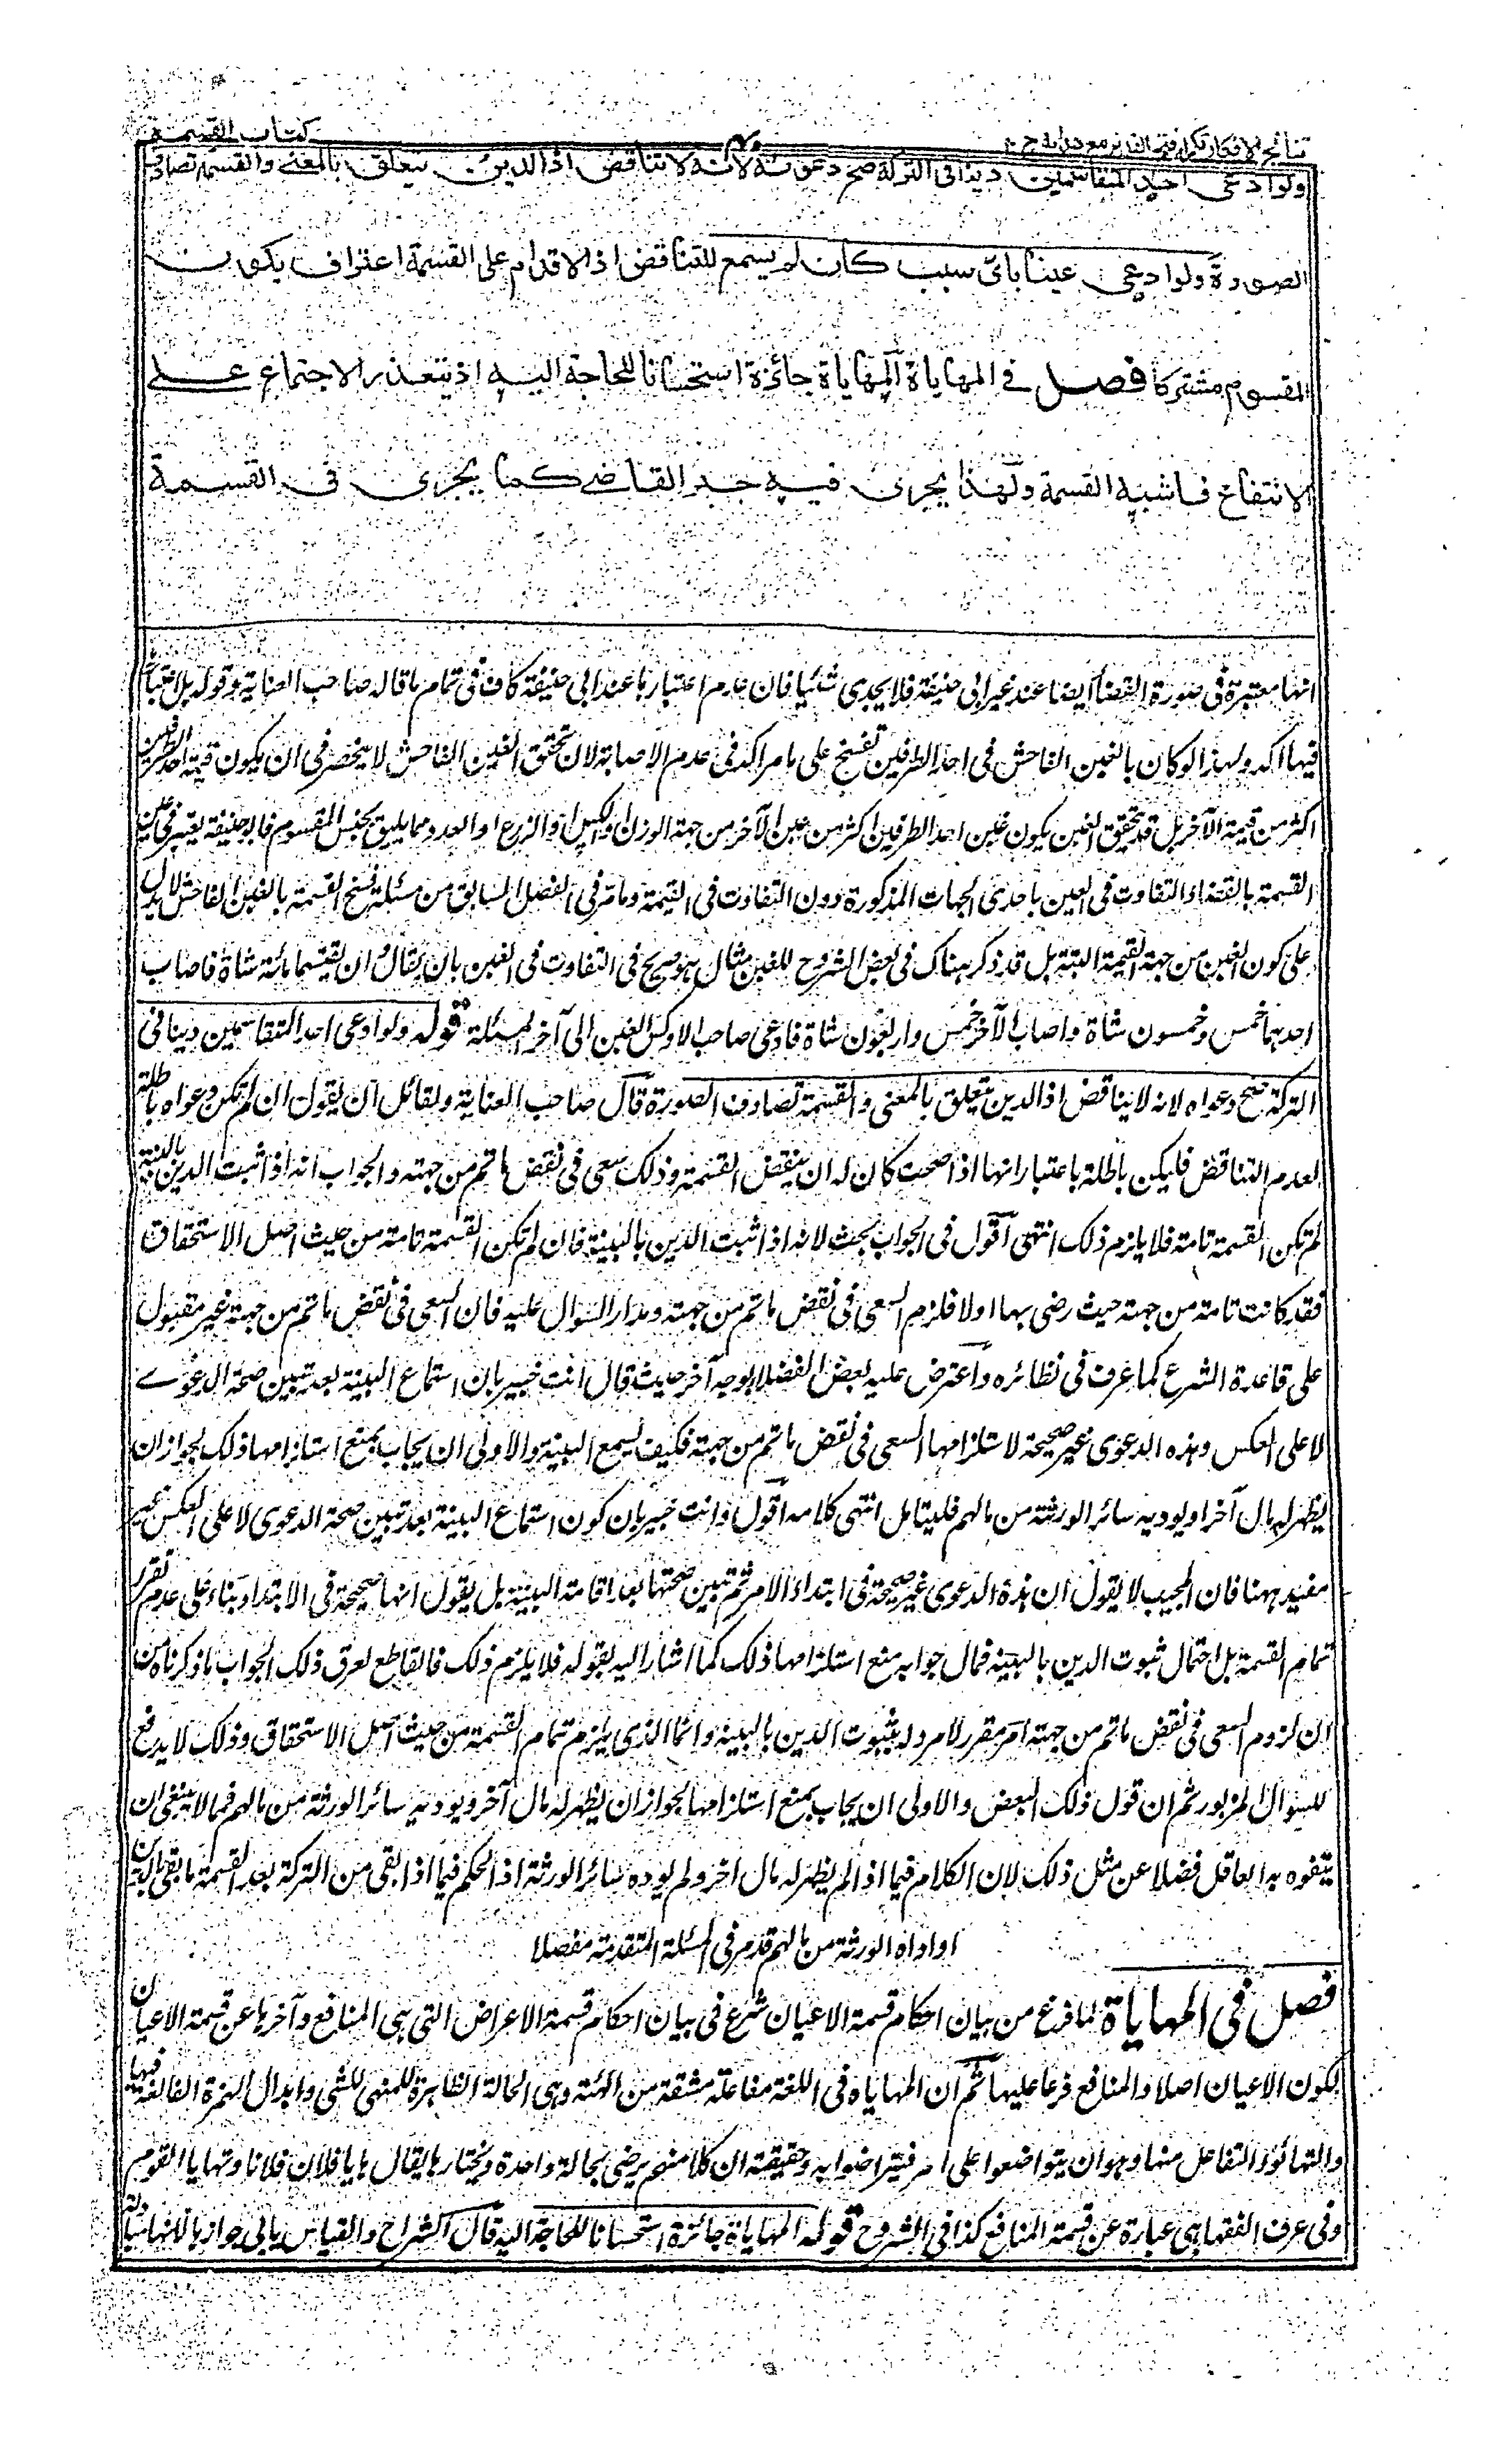 نتائج الافكار تكملة فتح القدير مع هداية ج
كتاب القسمة
ولو ادعى احد المتقاسمين دينا فى التركة صح دعواه لانه لا تناقض اذ الدين يتعلق بالمعنى والقسمة تصادف
الصورة ولو ادعى عينا باى سبب كان لم يسمع للتناقض اذ الاقدام على القسمة اعتراف بكون
المقسوم مشتركا فصل فى المهاياة المهاياة جائزة استحسانا للحاجة اليه اذ يتعذر الاجتماع على
الانتفاع فاشبه القسمة ولهذا يجرى فيه جبر القاضى كما يجرى فى القسمة
انها معتبرة فى صورة القضاء ايضا عند غير ابى حنيفة فلا يجدى شئيا فان عدم اعتبارها عند ابى حنيفة كاف فى تمام ما قاله صاحب العناية وقوله بل اعتبار
فيها اكد ولهذا لو كان بالغبن الفاحش فى احد الطرفين تفسخ على ما مر اكد فى عدم الاصابة لان تحقق الغبن الفاحش لا ينحصر فى ان يكون قيمة احد الطرفين
اكثر من قيمة الآخر بل قد يتحقق الغبن بكون عين احد الطرفين اكثر من عين الآخر من جهة الوزن او الكيل او الزرع او العدد مما يليق بجنس المقسوم فابو حنيفة يعتبر فى غبن
القسمة بالقضاء التفاوت فى العين باحدى الجهات المذكورة دون التفاوت فى القيمة وما مر فى الفصل السابق من مسئلة فسخ القسمة بالغبن الفاحش لا يدل
على كون الغبن من جهة القيمة البتة بل قد ذكر هناك فى بعض الشروح للغبن مثال هو صريح فى التفاوت فى العين بان يقال ان يقتسما مائة شاة فاصاب
احدهما خمس وخمسون شاة واصاب الآخر خمس واربعون شاة فادعى صاحب الاوكس الغبن الى آخر المسئلة قوله ولو ادعى احد المتقاسمين دينا فى
التركة صح دعواه لانه لا يناقض اذ الدين يتعلق بالمعنى والقسمة تصادف الصورة قال صاحب العناية ولقائل ان يقول ان لم تكن دعواه باطلة
لعدم التناقض فليكن باطلة باعتبار انها اذا صحت كان له ان ينقض القسمة وذلك سعى فى نقض ما تم من جهته والجواب انه اذا ثبت الدين بالبينة
لم تكن القسمة تامة فلا يلزم ذلك انتهى اقول فى الجواب بحث لانه اذا ثبت الدين بالبينة فان لم تكن القسمة تامة من حيث اصل الاستحقاق
فقد كانت تامة من جهته حيث رضى بها اولا فلزم السعى فى نقض ما تم من جهته ومدار السوال عليه فان السعى فى نقض ما تم من جهته غير مقبول
على قاعدة الشرع كما عرف فى نظائره واعترض عليه بعض الفضلا بوجه آخر حيث قال انت خبير بان استماع البينة بعد تبين صحة الدعوے
لا على العكس وهذه الدعوى غير صحيحة لاستلزامها السعى فى نقض ما تم من جهته فكيف يسمع البينة والاولى ان يجاب بمنع استلزامها ذلك لجواز ان
يظهر له مال آخر او يوديه سائر الورثة من مالهم فليتامل انتهى كلامه اقول وانت خبير بان كون استماع البينة بعد تبين صحة الدعوى لا على العكس غير
مفيد ههنا فان المجيب لا يقول ان هذه الدعوى غير صحيحة فى ابتداء الامر ثم تبين صحتها بعد اقامة البينة بل يقول انها صحيحة فى الابتداء بناء على عدم تقرر
تمام القسمة بل احتمال ثبوت الدين بالبينة فمال جوابه منع استلزامها ذلك كما اشار اليه بقوله فلا يلزم ذلك فالقاطع لعرق ذلك الجواب ما ذكرناه من
ان لزوم السعى فى نقض ما تم من جهته امر مقرر لا مرد له بثبوت الدين بالبينة وانما الذى يلزم تمام القسمة من حيث اصل الاستحقاق وذلك لا يدفع
السوال المزبور ثم ان قول ذلك البعض والاولى ان يجاب بمنع استلزامها لجواز ان يظهر له مال آخر ويوديه سائر الورثة من مالهم فمما لا ينبغى ان
يتفوه به العاقل فضلا عن مثل ذلك لان الكلام فيما اذا لم يظهر له مال آخر ولم يوده سائر الورثة اذ الحكم فيما اذا بقى من التركة بعد القسمة ما يفى بالدين
او اداه الورثة من مالهم قد مر فى المسئلة المتقدمة مفصلا
فصل فى المهاياة لما فرغ من بيان احكام قسمة الاعيان شرع فى بيان احكام قسمة الاعراض التى هى المنافع وآخرها عن قسمة الاعيان
لكون الاعيان اصلا والمنافع فرعا عليها ثم ان المهاياه فى اللغة مفاعلة مشتقة من الهئة وهى الحالة الظاهرة للمتهى للشى وابدال الهمزة الفا لغة فيها
والتهائو التفاعل منها وهو ان يتواضعوا على امر فيتراضوا به وحقيقته ان كلا منهم يرضى بحالة واحدة ويختارها يقال هايا فلان فلانا وتهايا القوم
وفى عرف الفقها هى عبارة عن قسمة المنافع كذا فى الشروح قوله المهاياة جائزة استحسانا للحاجة اليه قال الشراح والقياس يابى جوازها لانها مبادلة